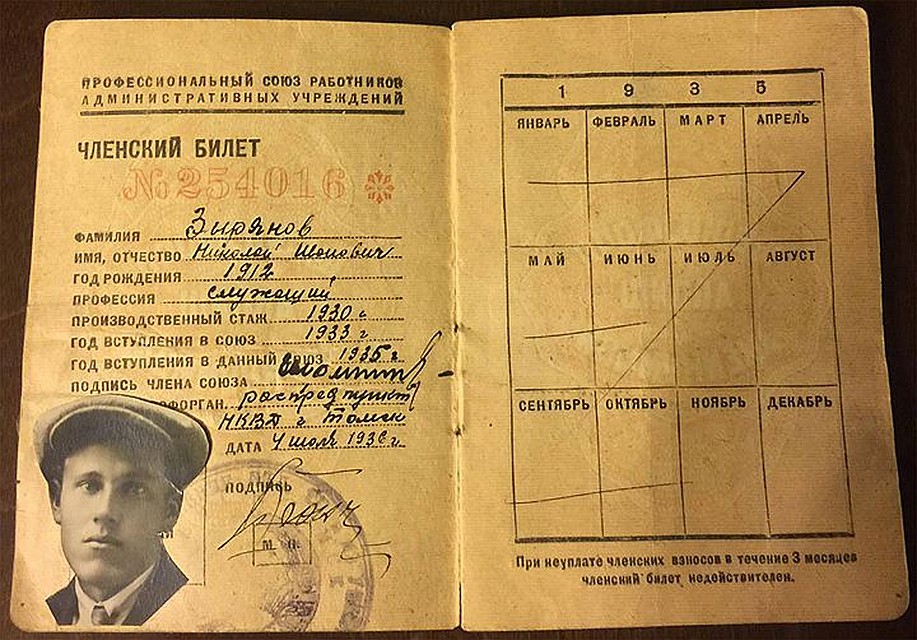 ПРОФЕССИОНАЛЬНЫЙ СОЮЗ РАБОТНИКОВ
АДМИНИСТРАТИВНЫХ УЧРЕЖДЕНИЙ
ЧЛЕНСКИЙ БИЛЕТ
№254016
ФАМИЛИЯ Зырянов
ИМЯ, ОТЧЕСТВО Николай
ГОД РОЖДЕНИЯ 1912
ПРОФЕССИЯ служащий
ПРОИЗВОДСТВЕННЫЙ СТАЖ 1930 г
ГОД ВСТУПЛЕНИЯ В СОЮЗ 1933 г
ГОД ВСТУПЛЕНИЯ В ДАННЫЙ СОЮЗ 1935 г.
ПОДПИСЬ ЧЛЕНА СОЮЗА
ОФОРГАН. распред пункт
НКВД г Томск
ДАТА 4 июля 1936 г.
ПОДПИСЬ
М. П.
1 9 3 5
ЯНВАРЬ ФЕВРАЛЬ МАРТ АПРЕЛЬ
МАЙ ИЮНЬ ИЮЛЬ АВГУСТ
СЕНТЯБРЬ ОКТЯБРЬ НОЯБРЬ ДЕКАБРЬ
При неуплате членских взносов в течение 3 месяцев
членский билет недействителен.